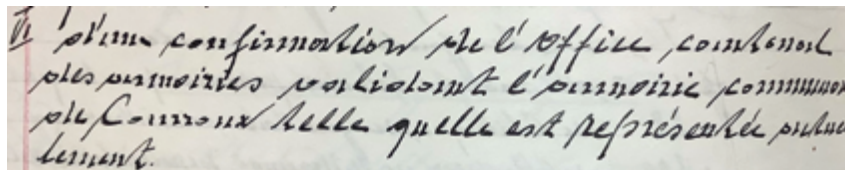 VI d'une confirmation de l'Office cantonal
des armoiries validant l'armoirie communa
de Courroux telle quelle est représentée actuel
lement.